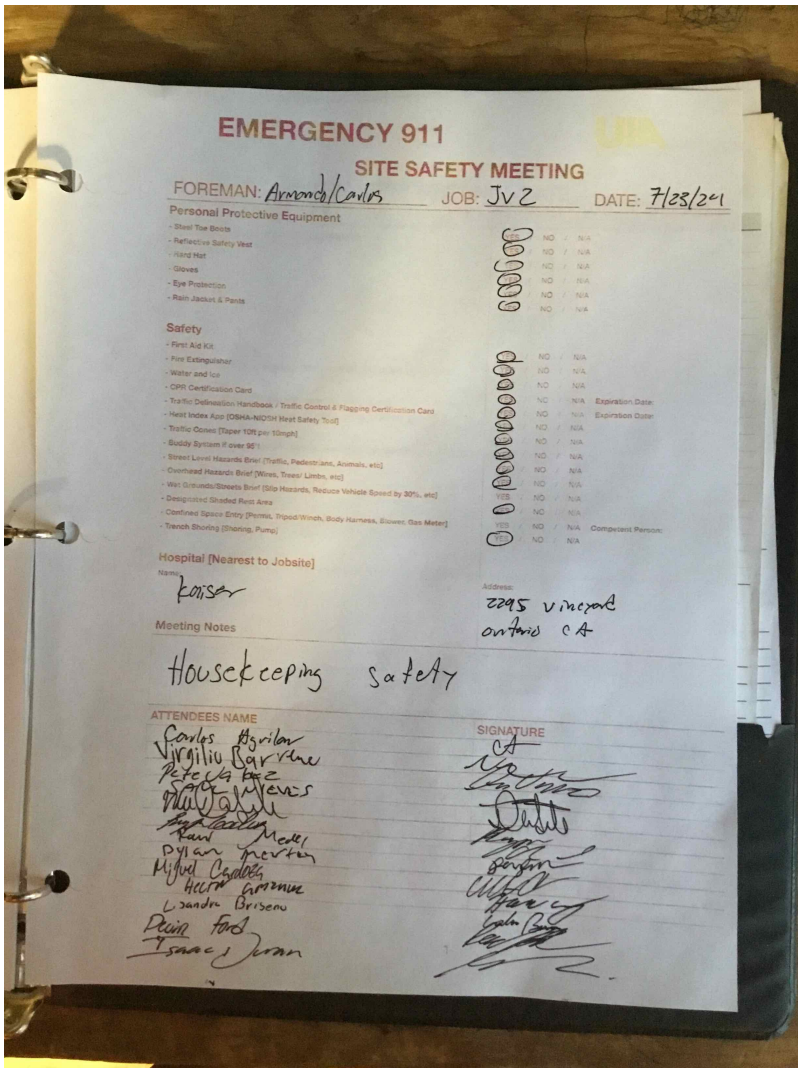 EMERGENCY 911
UIA
SITE SAFETY MEETING
FOREMAN: Armando/Carlos JOB: JV2 DATE: 7/23/24
Personal Protective Equipment
- Steel Toe Boots YES / NO / N/A
- Reflective Safety Vest YES / NO / N/A
- Hard Hat YES / NO / N/A
- Gloves YES / NO / N/A
- Eye Protection YES / NO / N/A
- Rain Jacket & Pants YES / NO / N/A
Safety
- First Aid Kit YES / NO / N/A
- Fire Extinguisher YES / NO / N/A
- Water and Ice YES / NO / N/A
- CPR Certification Card YES / NO / N/A Expiration Date:
- Traffic Delineation Handbook / Traffic Control & Flagging Certification Card YES / NO / N/A Expiration Date:
- Heat Index App [OSHA-NIOSH Heat Safety Tool] YES / NO / N/A
- Traffic Cones [Taper 10ft per 10mph] YES / NO / N/A
- Buddy System if over 95° YES / NO / N/A
- Street Level Hazards Brief [Traffic, Pedestrians, Animals, etc] YES / NO / N/A
- Overhead Hazards Brief [Wires, Trees/ Limbs, etc] YES / NO / N/A
- Wet Grounds/Streets Brief [Slip Hazards, Reduce Vehicle Speed by 30%, etc] YES / NO / N/A
- Designated Shaded Rest Area YES / NO / N/A
- Confined Space Entry [Permit, Tripod/Winch, Body Harness, Blower, Gas Meter] YES / NO / N/A Competent Person:
- Trench Shoring [Shoring, Pump] YES / NO / N/A
Hospital [Nearest to Jobsite]
Name: Kaiser
Address: 2295 vineyard
ontario CA
Meeting Notes
Housekeeping safety
ATTENDEES NAME SIGNATURE
Carlos Aguilar CA
Virgilio
Pete
Raul Medel
Dylan
Miguel Cardoza
Hector
Lisandro Briseno
Devin Ford
Isaac Duran